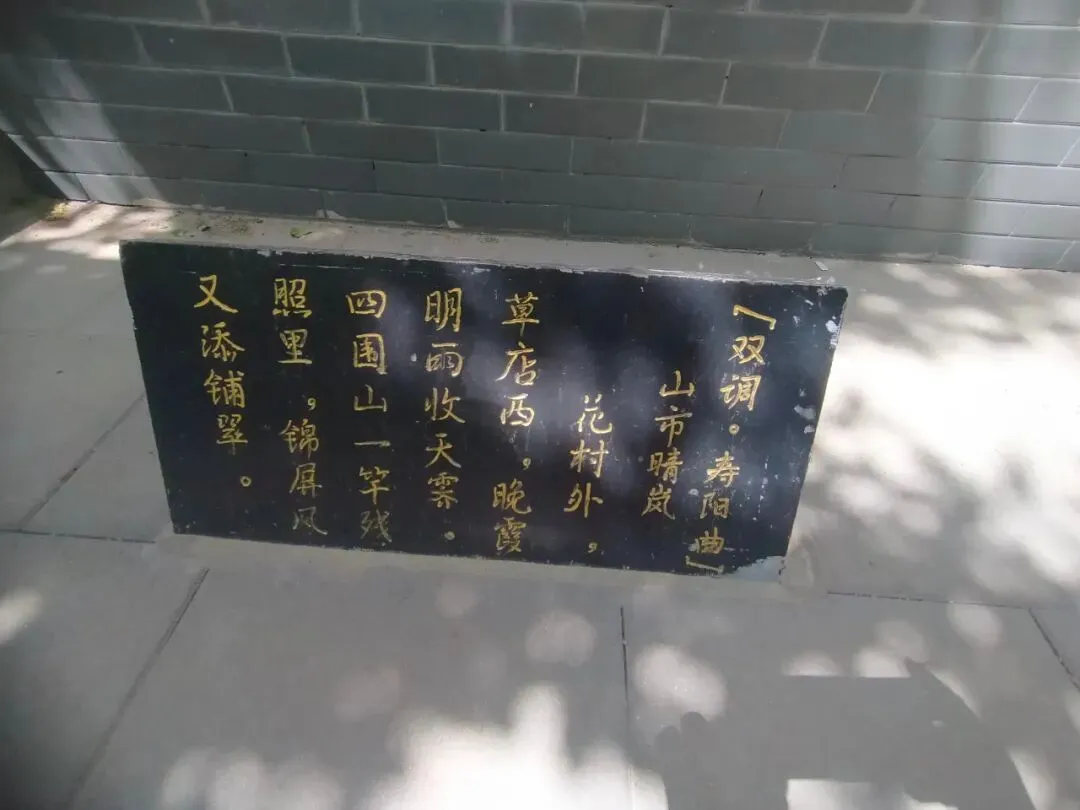 「双调。寿阳曲」
山市晴岚
花村外，
草店西，晚霞
明雨收天霁。
四围山一竿残
照里，锦屏风
又添铺翠。